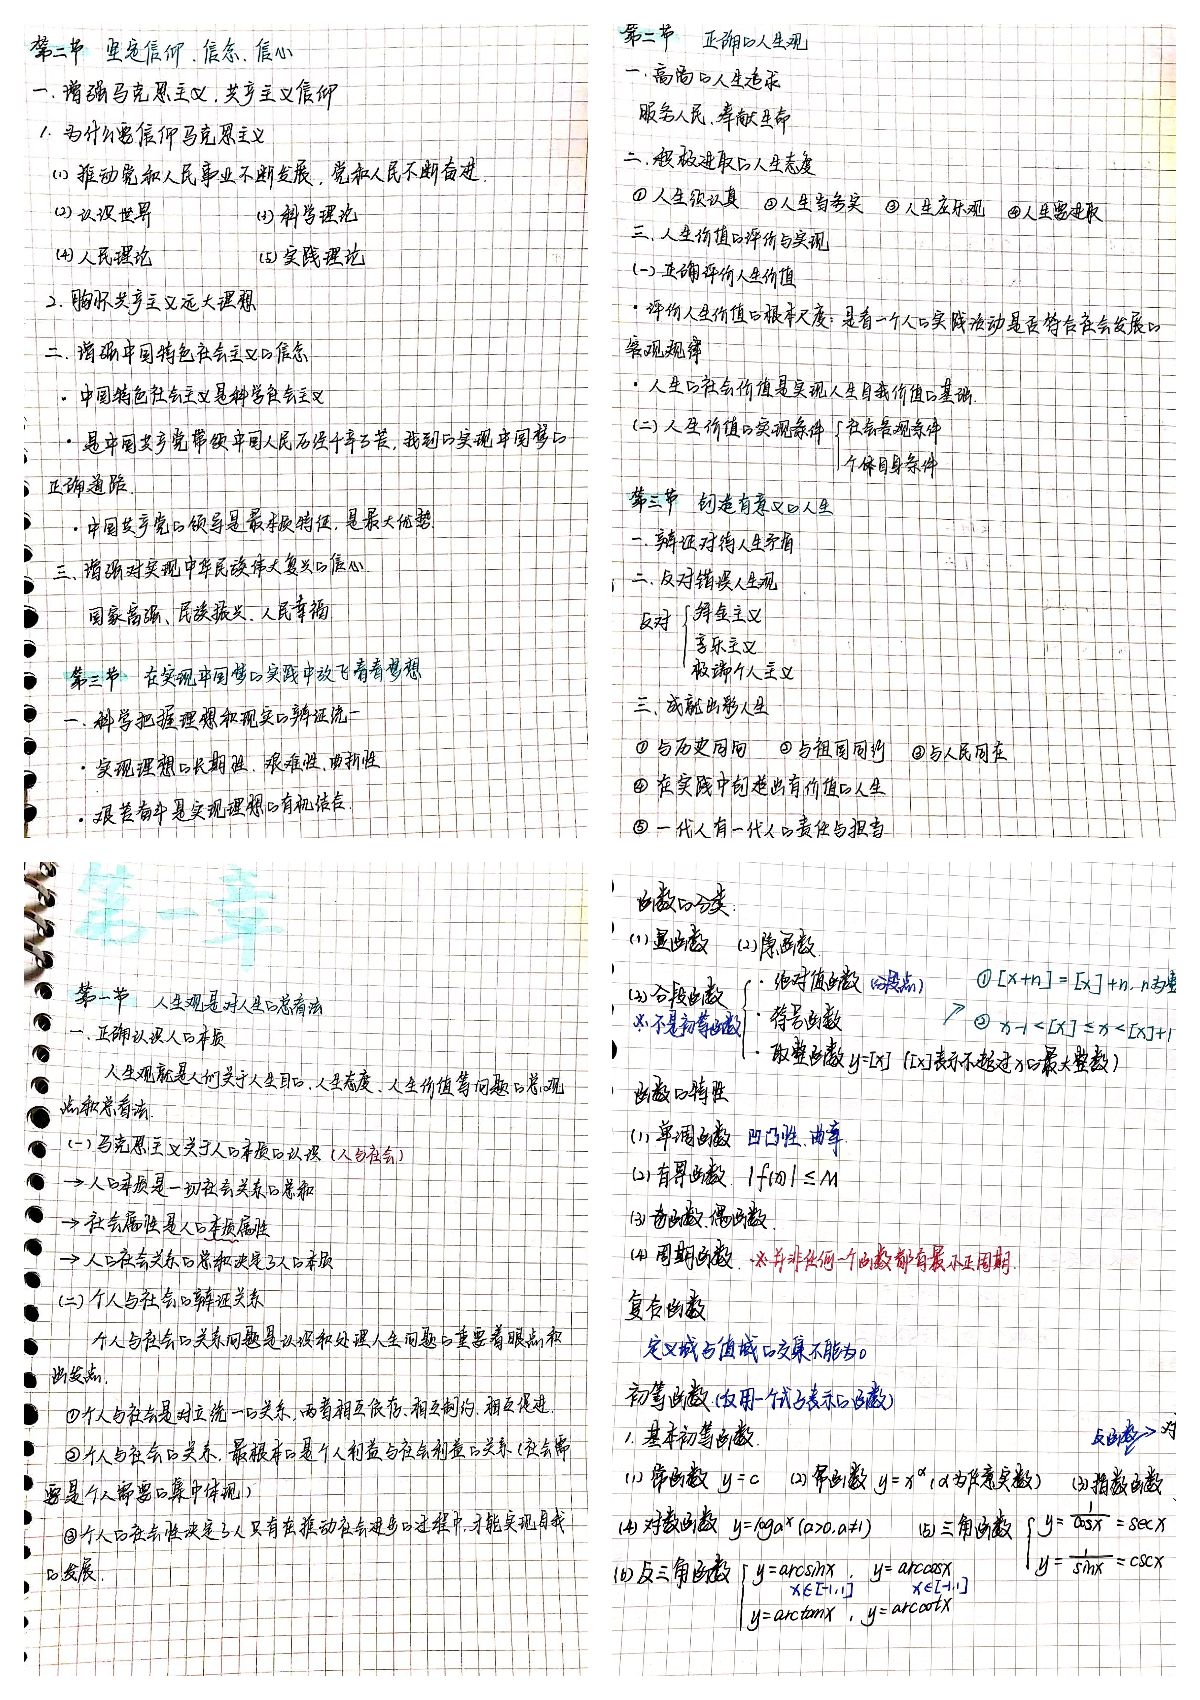 第二节 坚定信仰、信念、信心
一、增强马克思主义、共产主义信仰
1. 为什么要信仰马克思主义
(1) 推动党和人民事业不断发展,党和人民不断奋进.
(2) 认识世界 (3) 科学理论
(4) 人民理论 (5) 实践理论
2. 胸怀共产主义远大理想
二、增强中国特色社会主义的信念
· 中国特色社会主义是科学社会主义
· 是中国共产党带领中国人民历经千辛万苦,找到的实现中国梦的
正确道路.
· 中国共产党的领导是最本质特征,是最大优势.
三、增强对实现中华民族伟大复兴的信心.
国家富强、民族振兴、人民幸福
第三节 在实现中国梦的实践中放飞青春梦想
一、科学把握理想和现实的辩证统一
· 实现理想的长期性、艰难性、曲折性
· 艰苦奋斗是实现理想的有机结合.
第二节 正确的人生观
一、高尚的人生追求
服务人民、奉献生命
二、积极进取的人生态度
① 人生须认真 ②人生当务实 ③人生应乐观 ④人生要进取
三、人生价值的评价与实现
(一) 正确评价人生价值
· 评价人生价值的根本尺度:是看一个人的实践活动是否符合社会发展的
客观规律
· 人生的社会价值是实现人生自我价值的基础.
(二) 人生价值的实现条件 { 社会客观条件
个体自身条件
第三节 创造有意义的人生
一、辩证对待人生矛盾
二、反对错误人生观
反对 { 拜金主义
享乐主义
极端个人主义
三、成就出彩人生
① 与历史同向 ②与祖国同行 ③与人民同在
④ 在实践中创造出有价值的人生
⑤ 一代人有一代人的责任与担当
第一章
第一节 人生观是对人生的总看法
一、正确认识人的本质
人生观就是人们关于人生目的、人生态度、人生价值等问题的总观
点和总看法.
(一) 马克思主义关于人的本质的认识 (人与社会)
→ 人的本质是一切社会关系的总和
→ 社会属性是人的本质属性
→ 人的社会关系的总和决定了人的本质
(二) 个人与社会的辩证关系
个人与社会的关系问题是认识和处理人生问题的重要着眼点和
出发点.
①个人与社会是对立统一的关系,两者相互依存、相互制约、相互促进.
②个人与社会的关系,最根本的是个人利益与社会利益的关系(社会需
要是个人需要的集中体现)
③个人的社会性决定了人只有在推动社会进步的过程中,才能实现自我
的发展.
函数的分类:
(1) 显函数 (2) 隐函数
(3) 分段函数 { · 绝对值函数 (分段点) ① [x+n] = [x]+n, n为整
※不是初等函数 · 符号函数 ↗ ② x-1<[x]≤x<[x]+1
· 取整函数 y=[x] ([x]表示不超过x的最大整数)
函数的特性
(1) 单调函数 凹凸性、曲率.
(2) 有界函数. |f(x)| ≤ M
(3) 奇函数、偶函数.
(4) 周期函数. ※并非任何一个函数都有最小正周期.
复合函数
定义域与值域的交集不能为0
初等函数 (仅用一个式子表示的函数)
1. 基本初等函数. 反函数→对
(1) 常函数 y=c (2) 幂函数 y=x^α (α为任意实数) (3) 指数函数
(4) 对数函数 y=logaˣ (a>0, a≠1) (5) 三角函数 { y=1/cosx=secx
y=1/sinx=cscx
(6) 反三角函数 { y=arcsinx, y=arccosx
x∈[-1,1] x∈[-1,1]
y=arctanx, y=arccotx